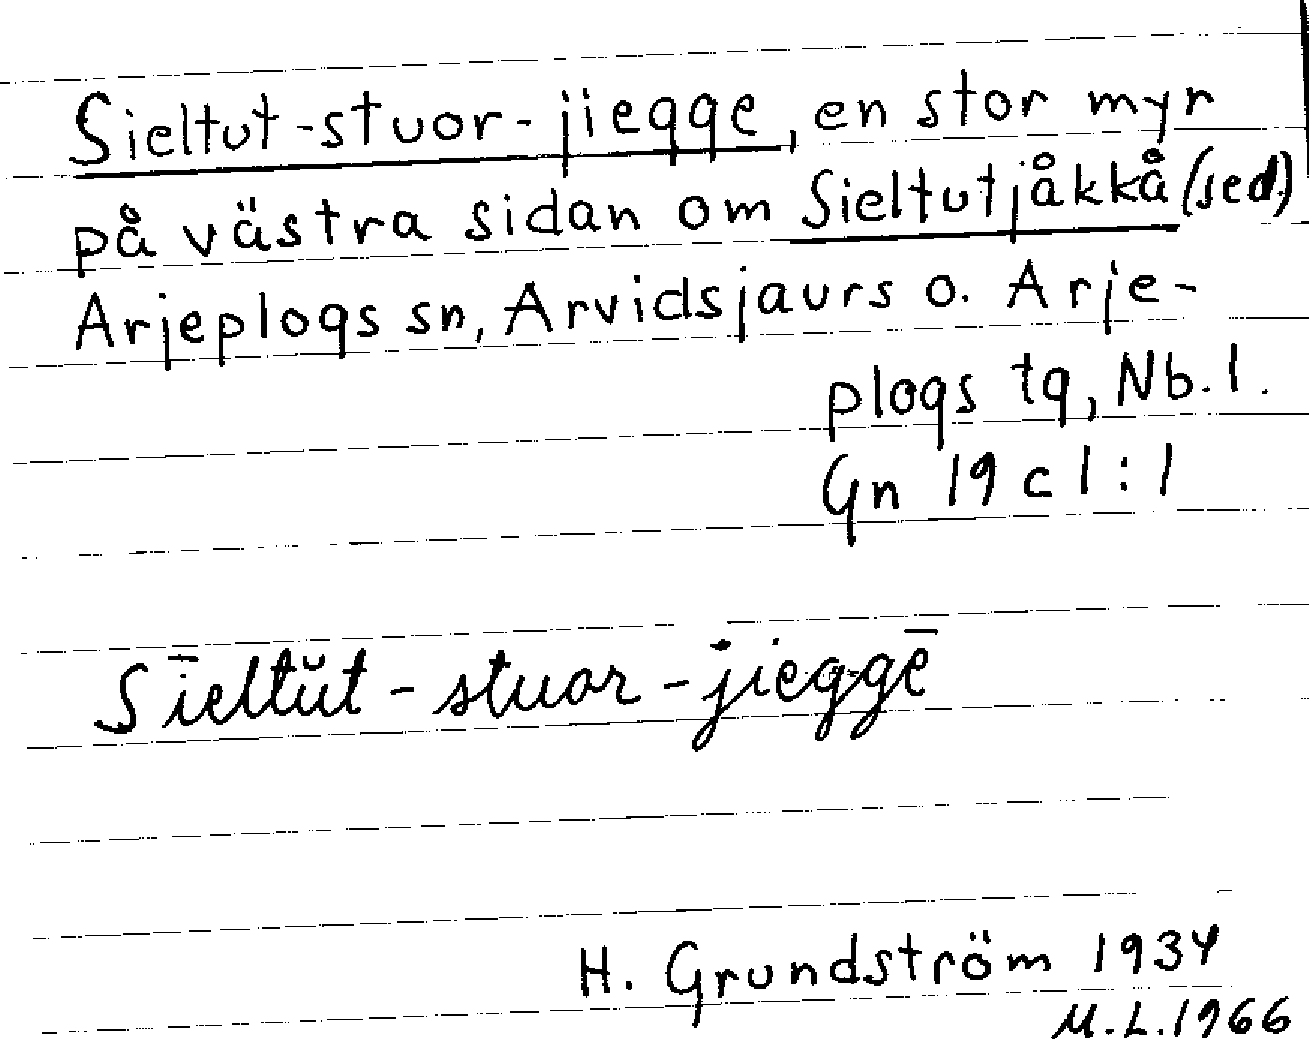 Sieltut-stuor-jiegge, en stor myr
på västra sidan om Sieltutjåkkå (sed.)
Arjeplogs sn, Arvidsjaurs o. Arje-
plogs tg, Nb. l.
Gn 19 c 1 : 1
Sīeltŭt - stuor - jieggē
H. Grundström 1934
M.L. 1966